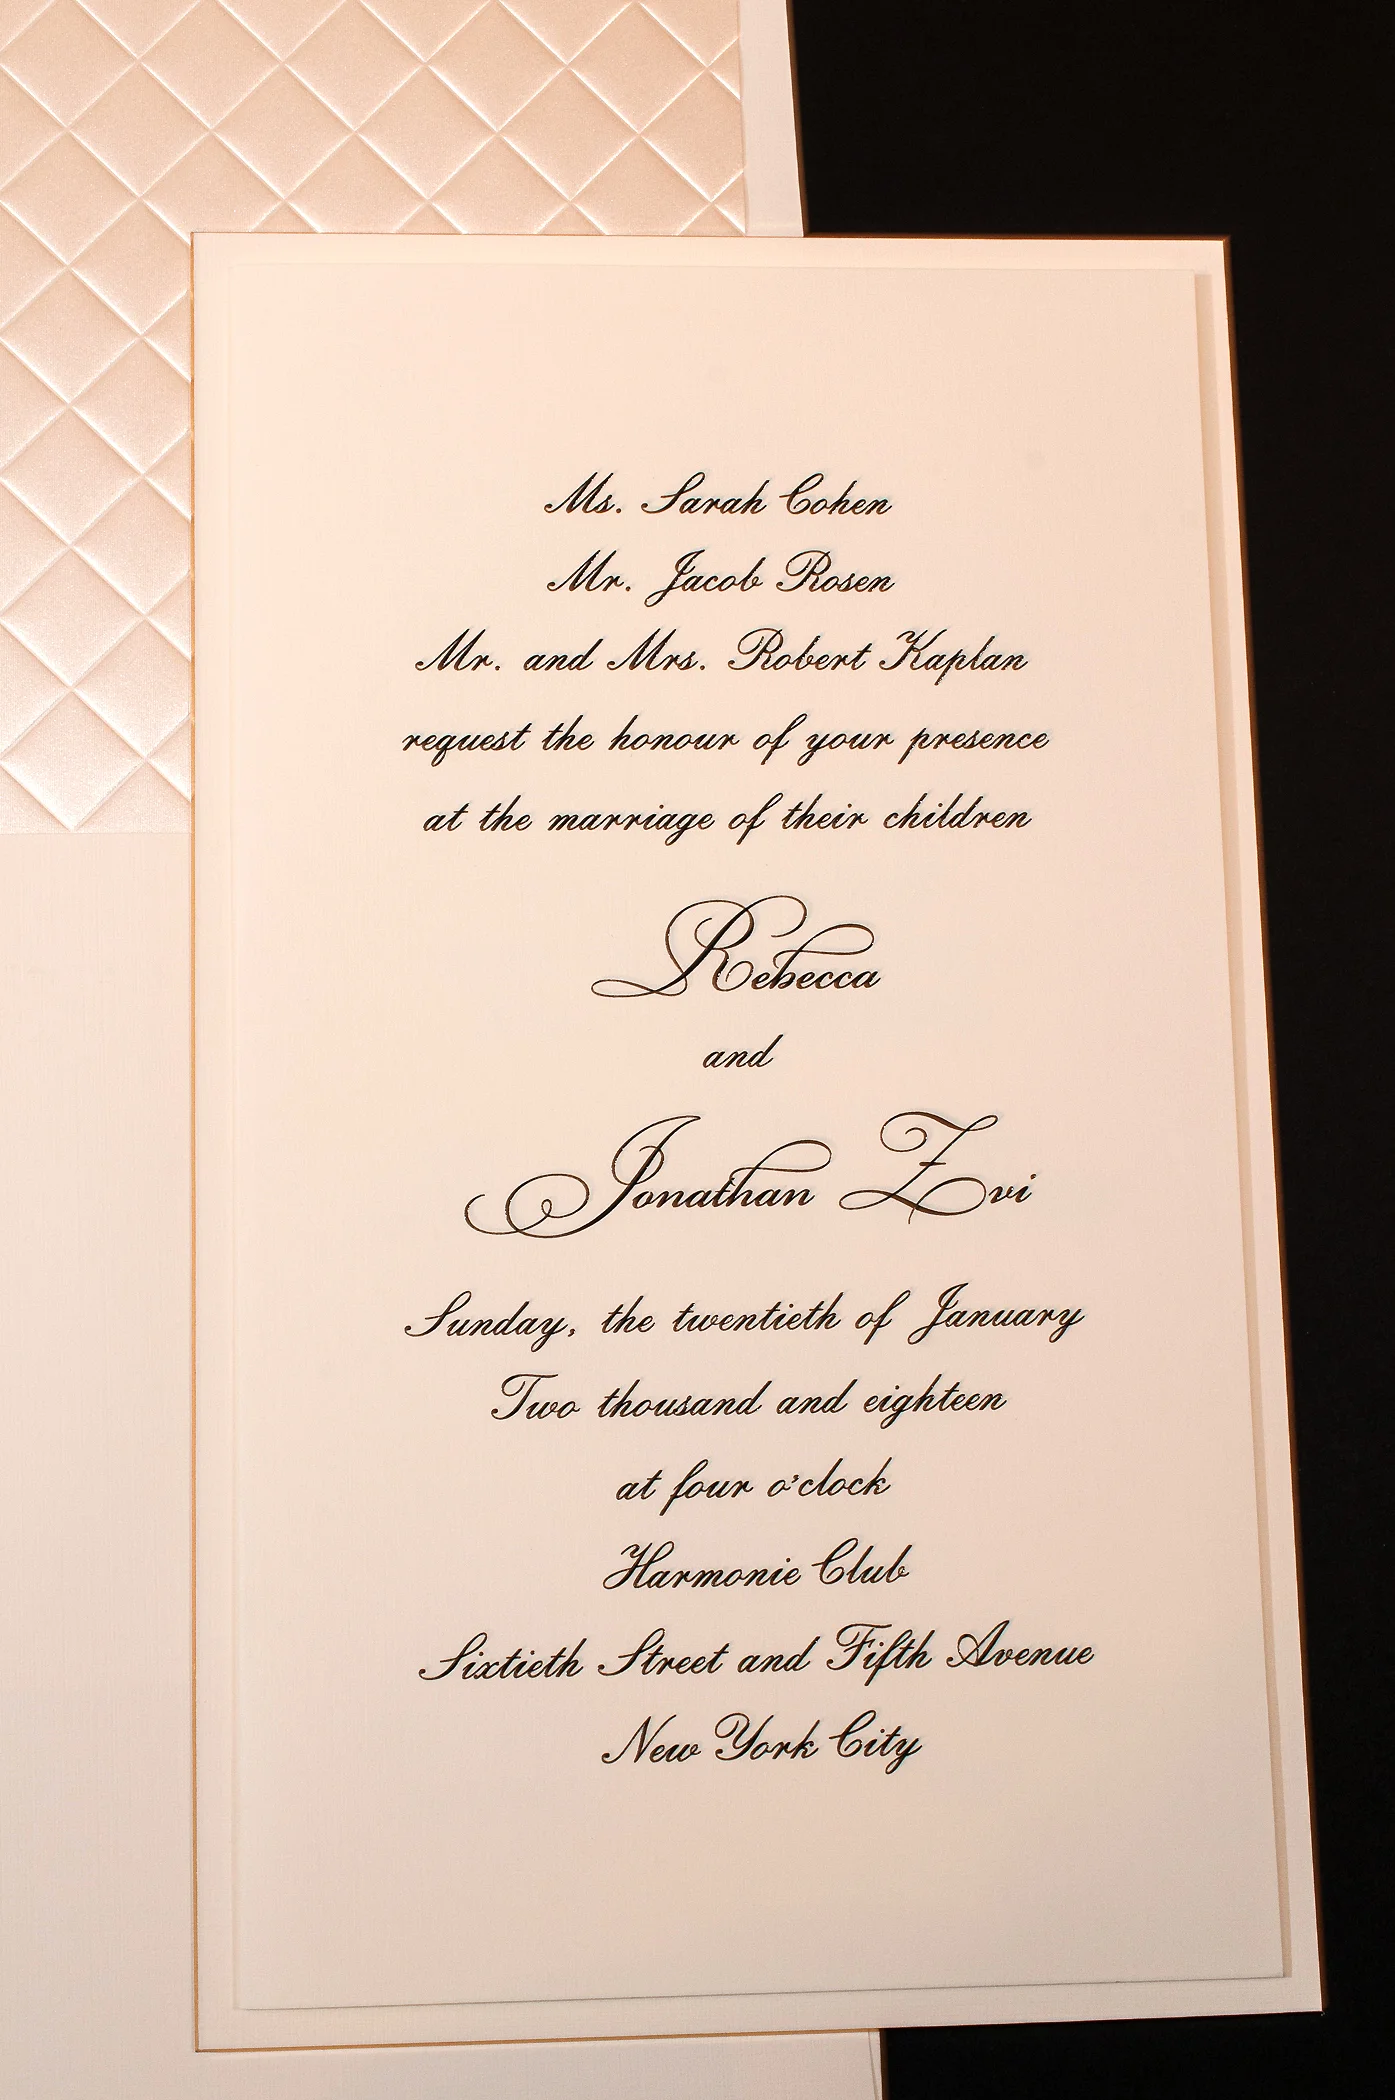 Ms. Sarah Cohen
Mr. Jacob Rosen
Mr. and Mrs. Robert Kaplan
request the honour of your presence
at the marriage of their children
Rebecca
and
Jonathan Zvi
Sunday, the twentieth of January
Two thousand and eighteen
at four o'clock
Harmonie Club
Sixtieth Street and Fifth Avenue
New York City